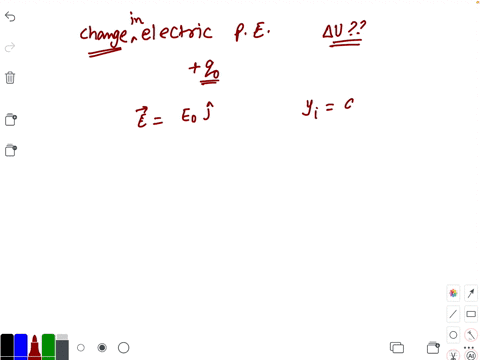 change in electric P.E. ΔU??
+q₀
E⃗ = E₀ ĵ yᵢ = c